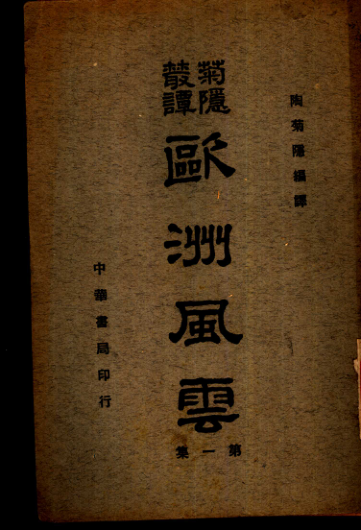 陶菊隱編譯
菊隱
叢譚
歐洲風雲
第一集
中華書局印行